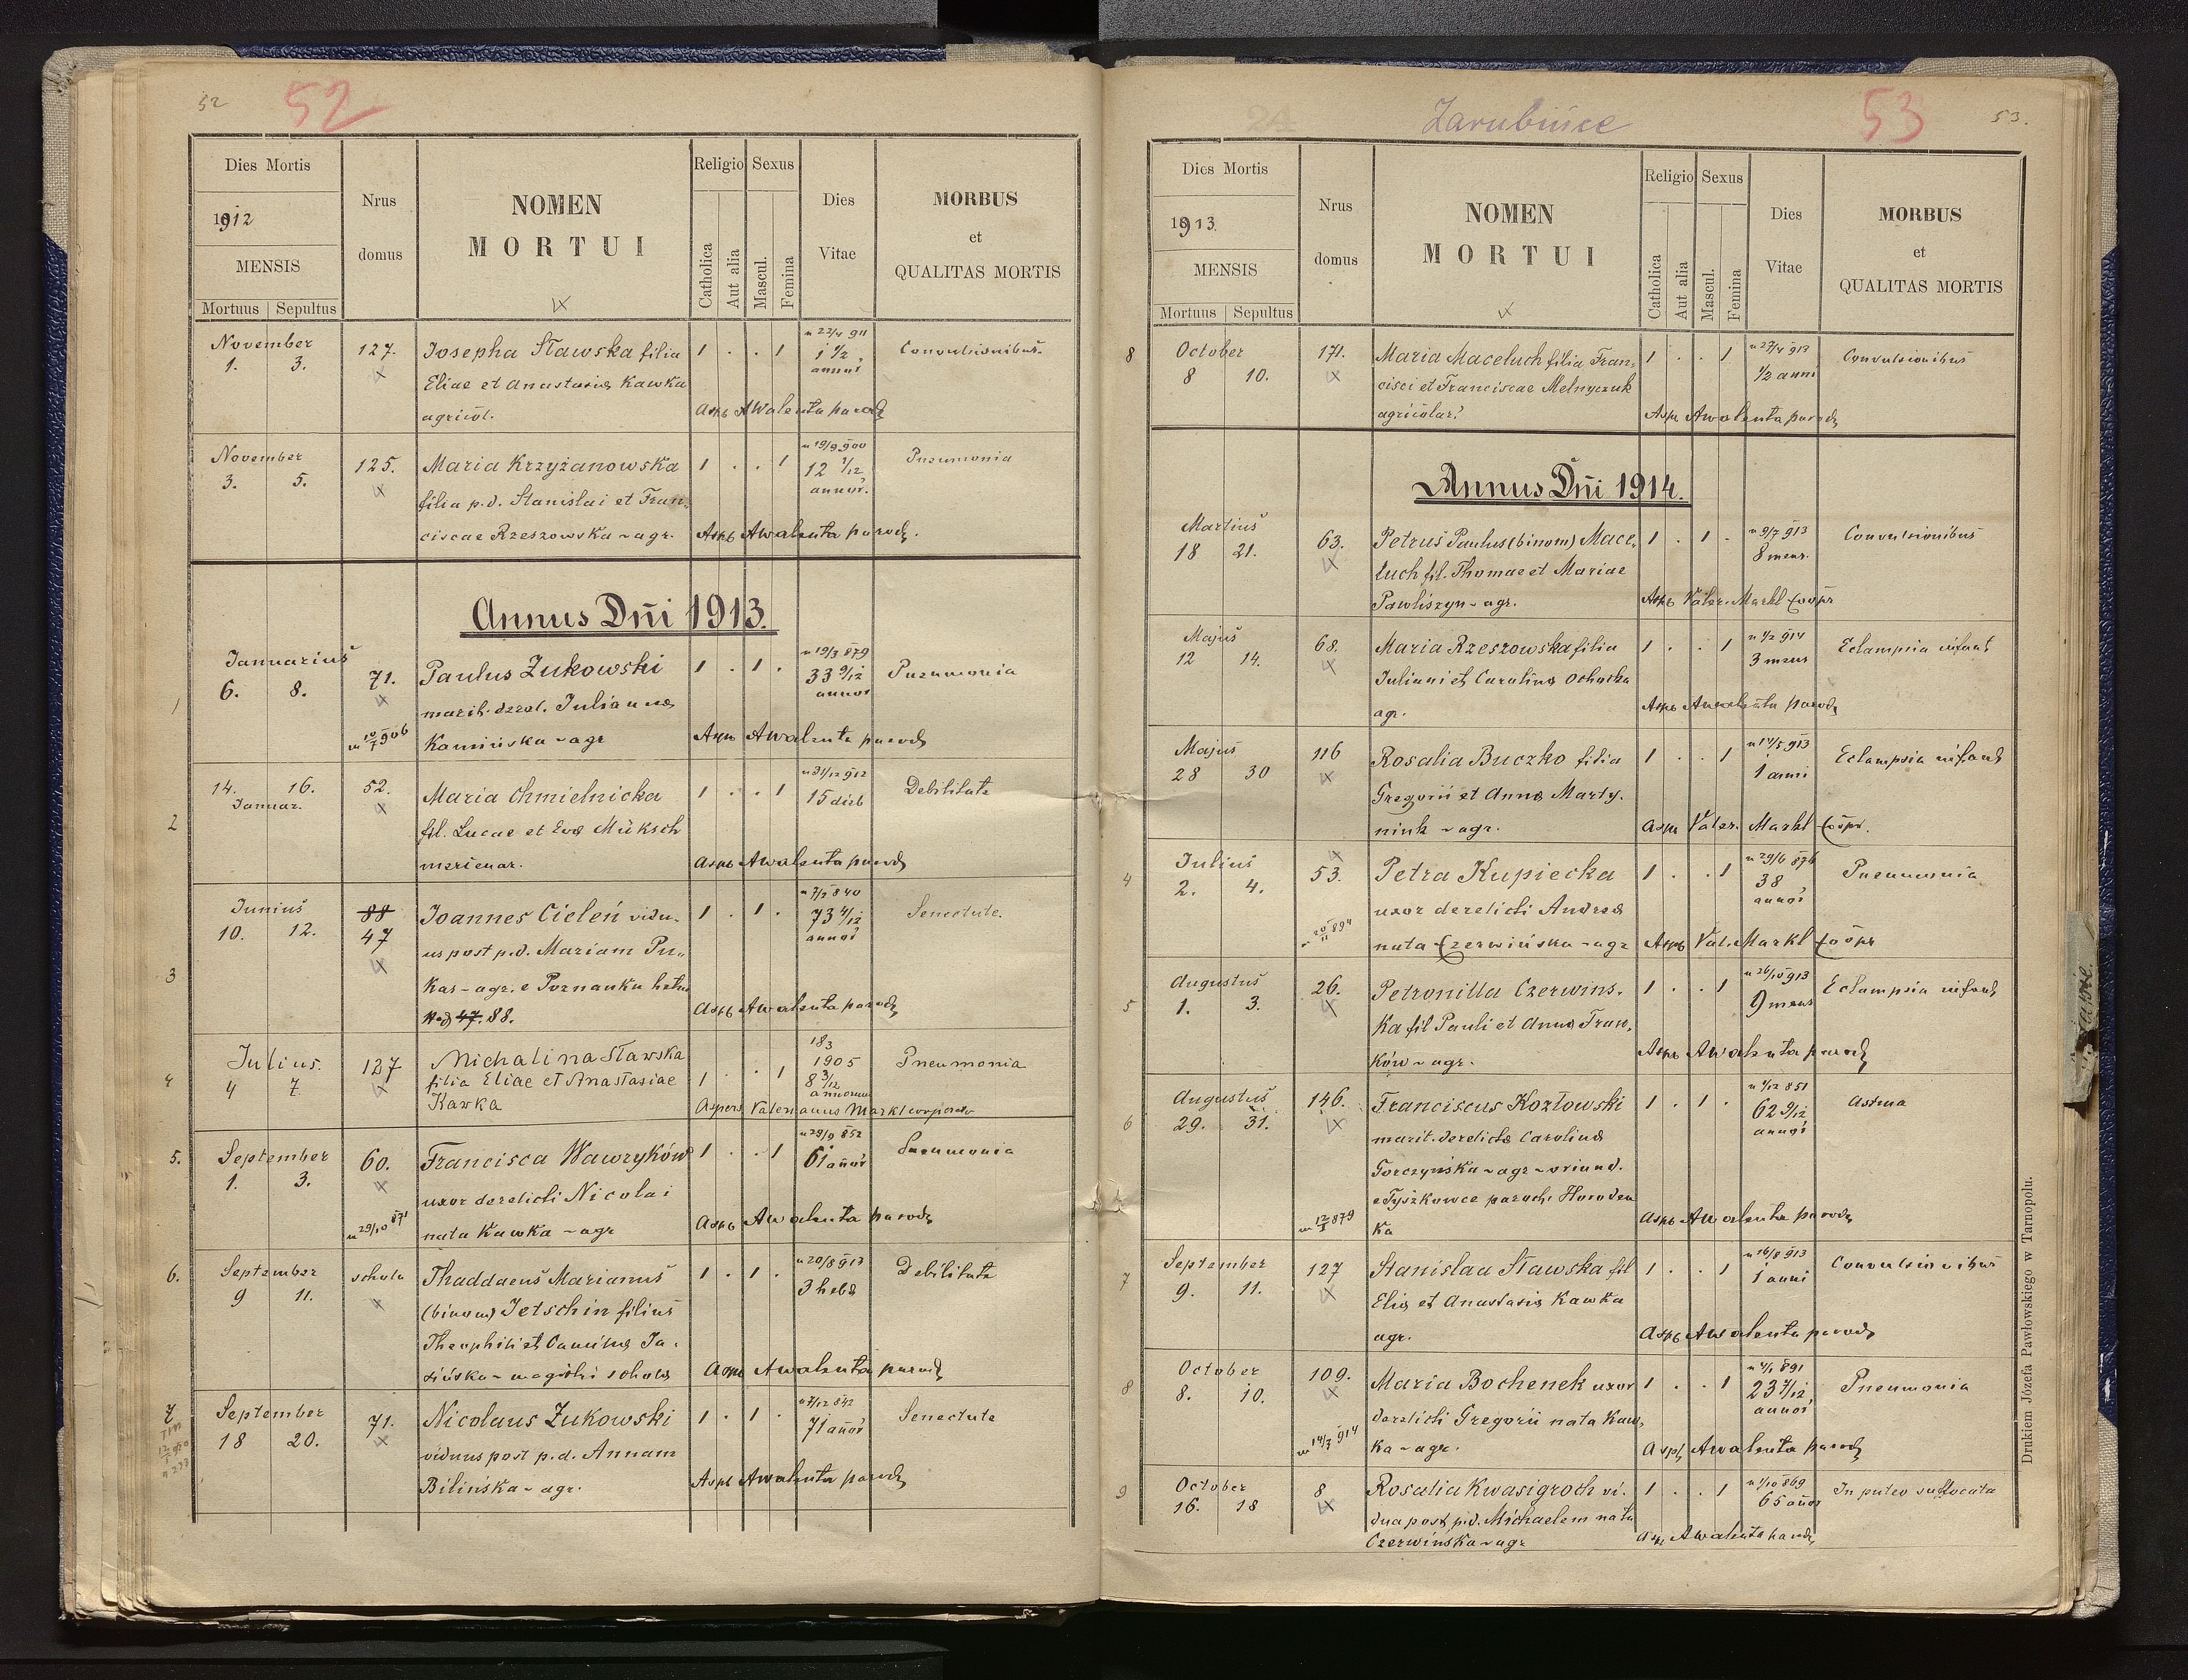 52
52
Dies Mortis
1912
MENSIS
Mortuus Sepultus
Nrus
domus
NOMEN
MORTUI
Religio
Catholica
Aut alia
Sexus
Mascul.
Femina
Dies
Vitae
MORBUS
et
QUALITAS MORTIS
November
1. 3.
127.
Josepha Sławska filia
Eliae et Anastasiae Kawka
agricol.
1 . . 1
n 22/4 911
1 1/2
annor
Convulsionibus.
Asps AWalenta paroch
November
3. 5.
125.
Maria Krzyżanowska
filia p.d. Stanislai et Fran-
ciscae Rzeszowska - agr.
1 . . 1
n 19/9 900
12 1/12
annor.
Pneumonia
Asps AWalenta paroch.
Annus Dni 1913.
1
Januarius
6. 8.
71.
m 10/7 906
Paulus Żukowski
marit. derel. Julianna
Kamińska - agr
1 . 1 .
n 19/3 879
33 9/12
annor
Pneumonia
Asps AWalenta paroch
2
14. 16.
Januar.
52.
Maria Chmielnicka
fil. Lucae et Evae Müksch
mercenar.
1 . . 1
n 31/12 912
15 dieb
Debilitate
Asps AWalenta paroch
3
Junius
10. 12.
88
47
Joannes Cieleń vidu-
us post p.d. Mariam Pu-
kas - agr. e Poznanka hetm
Nro 47. 88.
1 . 1 .
n 7/2 840
73 4/12
annor
Senectute.
Asps AWalenta paroch
4
Julius.
4 7.
127
Michalina Sławska
filia Eliae et Anastasiae
Kawka
1 . . 1
18 3
1905
8 3/12
annorum
Pneumonia
Aspers Valerianus Markl cooperator
5.
September
1. 3.
60.
m 29/10 871
Francisca Wawryków
uxor derelicti Nicolai
nata Kawka - agr
1 . . 1
n 29/9 852
61 annor
Pneumonia
Asps AWalenta paroch
6.
September
9 11.
schola
Thaddaeus Marianus
(binom) Jetschin filius
Theophili et Camillae Ja-
sińska - magistri scholae
1 . 1 .
n 20/8 913
3 hebd
Debilitate
Asps AWalenta paroch
7
September
18 20.
71.
Nicolaus Żukowski
viduus post p.d. Annam
Bilińska - agr.
1 . 1 .
n 7/12 842
71 annor
Senectute
Asps AWalenta paroch
Zarubińce
53
53.
Dies Mortis
1913.
MENSIS
Mortuus Sepultus
Nrus
domus
NOMEN
MORTUI
Religio
Catholica
Aut alia
Sexus
Mascul.
Femina
Dies
Vitae
MORBUS
et
QUALITAS MORTIS
8
October
8 10.
171.
Maria Maceluch filia Fran-
cisci et Franciscae Melnyczuk
agricolar.
1 . . 1
n 27/4 913
1/2 anni
Convulsionibus
Asps AWalenta paroch
Annus Dni 1914.
Martius
18 21.
63.
Petrus Paulus (binom) Mace-
luch fil. Thomae et Mariae
Pawliszyn - agr.
1 . 1 .
n 9/7 913
8 mens.
Convulsionibus
Asps Valer. Markl Coopr
Majus
12 14.
68.
Maria Rzeszowska filia
Juliani et Carolina Ochocka
agr.
1 . . 1
n 1/2 914
3 mens
Eclampsia infant
Asps AWalenta paroch
Majus
28 30
116
Rosalia Buczko filia
Gregorii et Annae Marty-
niuk - agr.
1 . . 1
n 14/5 913
1 anni
Eclampsia infant
Asps Valer. Markl Coopr.
4
Julius
2. 4.
53.
n 20/11 894
Petra Kupiecka
uxor derelicti Andreae
nata Czerwińska - agr
1 . . 1
n 29/6 876
38
annor
Pneumonia
Asps Val. Markl Coopr
5
Augustus
1. 3.
26.
Petronilla Czerwins-
ka fil Pauli et Annae Fran-
ków - agr.
1 . . 1
n 26/10 913
9 mens
Eclampsia infant
Asps AWalenta paroch
6
Augustus
29. 31.
146.
m 12/5 879
Franciscus Kozłowski
marit. derelictae Carolinae
Gorczyńska - agr - oriund.
e Tyszkowce paroch. Horoden
ka
1 . 1 .
n 4/12 851
62 9/12
annor
Astma
Asps AWalenta paroch
7
September
9. 11.
127
Stanislaa Sławska fil
Eliae et Anastasiae Kawka
agr.
1 . . 1
n 16/8 913
1 anni
Convulsionibus
Asps AWalenta paroch
8
October
8. 10.
109.
m 14/7 914
Maria Bochenek uxor
derelicti Gregorii nata Kaw-
ka - agr.
1 . . 1
n 4/1 891
23 7/12
annor
Pneumonia
Asps AWalenta paroch
9
October
16. 18
8
Rosalia Kwasigroch vi-
dua post p.d. Michaelem nata
Czerwińska - agr
1 . . 1
n 1/10 869
65 annor
In puteo suffocata
Asps AWalenta paroch
Drukiem Józefa Pawłowskiego w Tarnopolu.